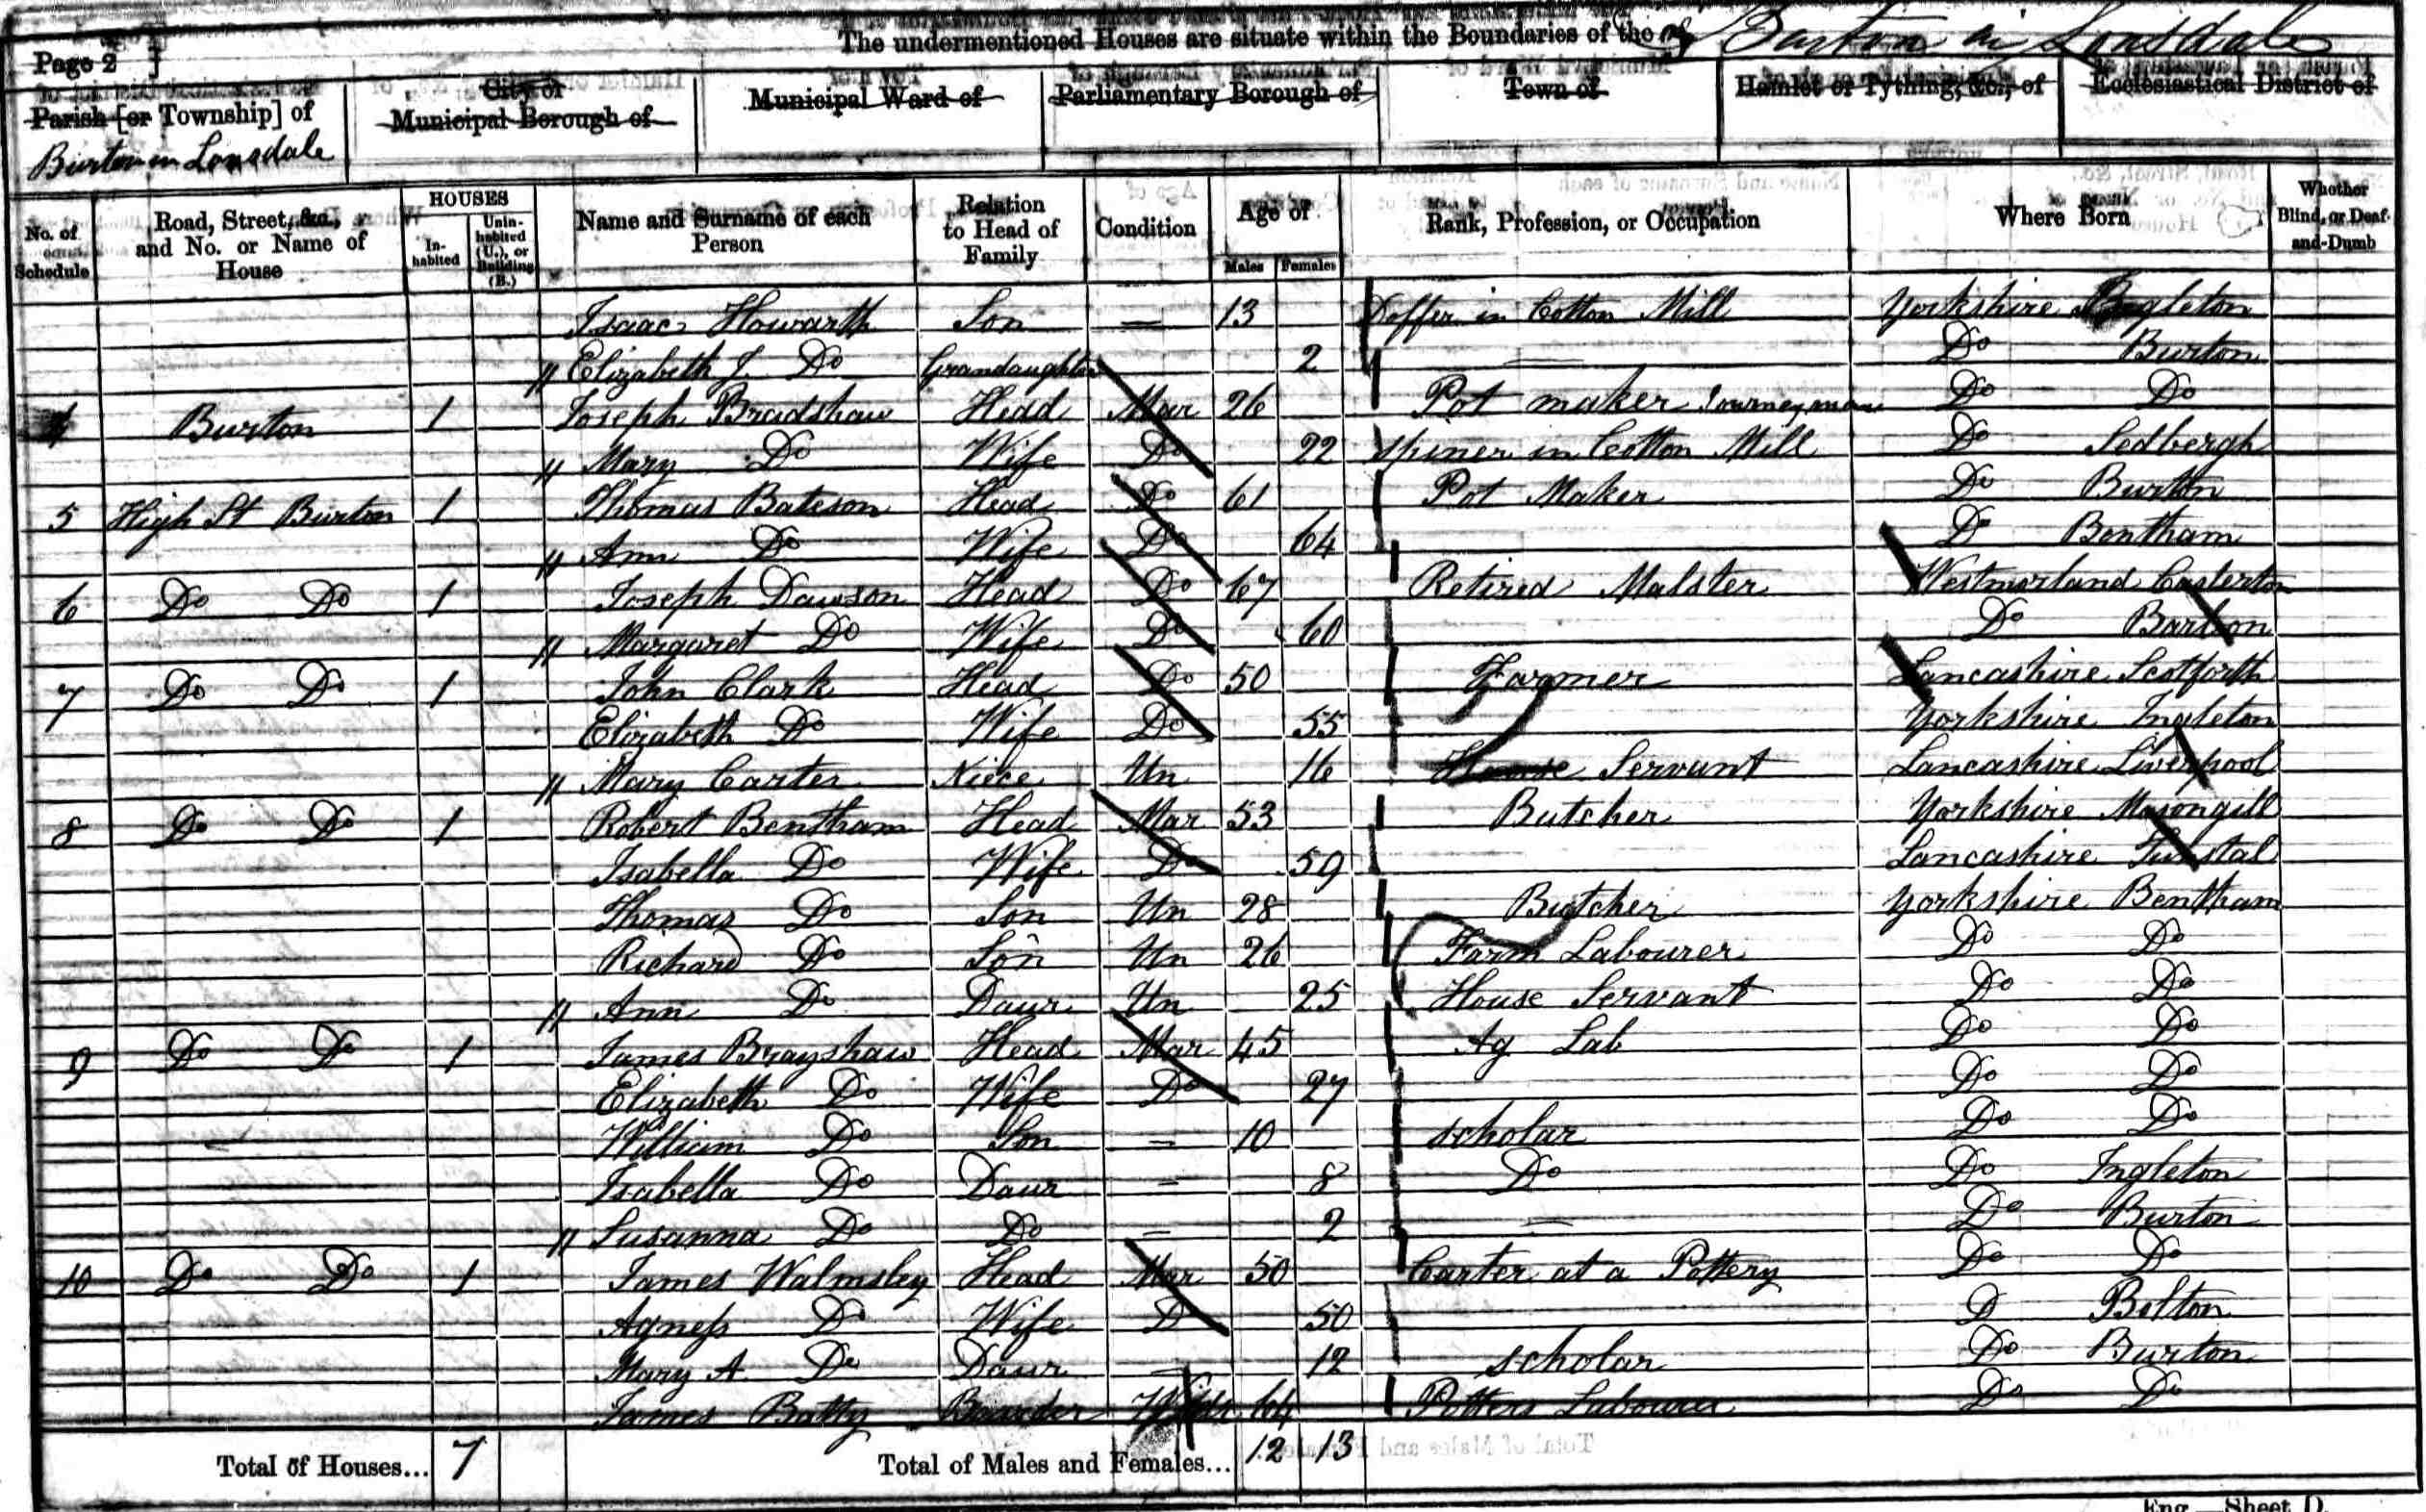 The undermentioned Houses are situate within the Boundaries of the
Page 2
Burton in Lonsdale
Parish [or Township] of
City or Municipal Borough of
Municipal Ward of
Parliamentary Borough of
Town of
Hamlet or Tything, &c., of
Ecclesiastical District of
Burton in Lonsdale
No. of Schedule
Road, Street, &c., and No. or Name of House
HOUSES
In-habited
Unin-habited (U.), or Building (B.)
Name and Surname of each Person
Relation to Head of Family
Condition
Age of
Males
Females
Rank, Profession, or Occupation
Where Born
Whether Blind, or Deaf-and-Dumb
Isaac Howarth Son — 13 Doffer in Cotton Mill Yorkshire Ingleton
" Elizabeth J. Do Grandaughter 2 — Do Burton
4 Burton 1 Joseph Bradshaw Head Mar 26 Pot maker Journeyman Do Do
" Mary Do Wife Do 22 Spiner in Cotton Mill Do Sedbergh
5 High St Burton 1 Thomas Bateson Head Do 61 Pot Maker Do Burton
" Ann Do Wife Do 64 Do Bentham
6 Do Do 1 Joseph Dawson Head Do 67 Retired Malster Westmorland Casterton
" Margaret Do Wife Do 60 Do Barbon
7 Do Do 1 John Clark Head Do 50 Farmer Lancashire Scotforth
Elizabeth Do Wife Do 55 Yorkshire Ingleton
" Mary Carter Niece Un 16 House Servant Lancashire Liverpool
8 Do Do 1 Robert Bentham Head Mar 53 Butcher Yorkshire Masongill
Isabella Do Wife Do 59 Lancashire Tunstal
Thomas Do Son Un 28 Butcher Yorkshire Bentham
Richard Do Son Un 26 Farm Labourer Do Do
" Ann Do Daur Un 25 House Servant Do Do
9 Do Do 1 James Brayshaw Head Mar 45 Ag Lab Do Do
Elizabeth Do Wife Do 27 Do Do
William Do Son — 10 Scholar Do Do
Isabella Do Daur — 8 Do Do Ingleton
" Susanna Do Do — 2 — Do Burton
10 Do Do 1 James Walmsley Head Mar 50 Carter at a Pottery Do Do
Agness Do Wife D 50 D Bolton
Mary A Do Daur — 12 Scholar Do Burton
James Batty Boarder Widr 64 Potters Labourer Do Do
Total of Houses... 7
Total of Males and Females... 12 13
Eng.—Sheet D.